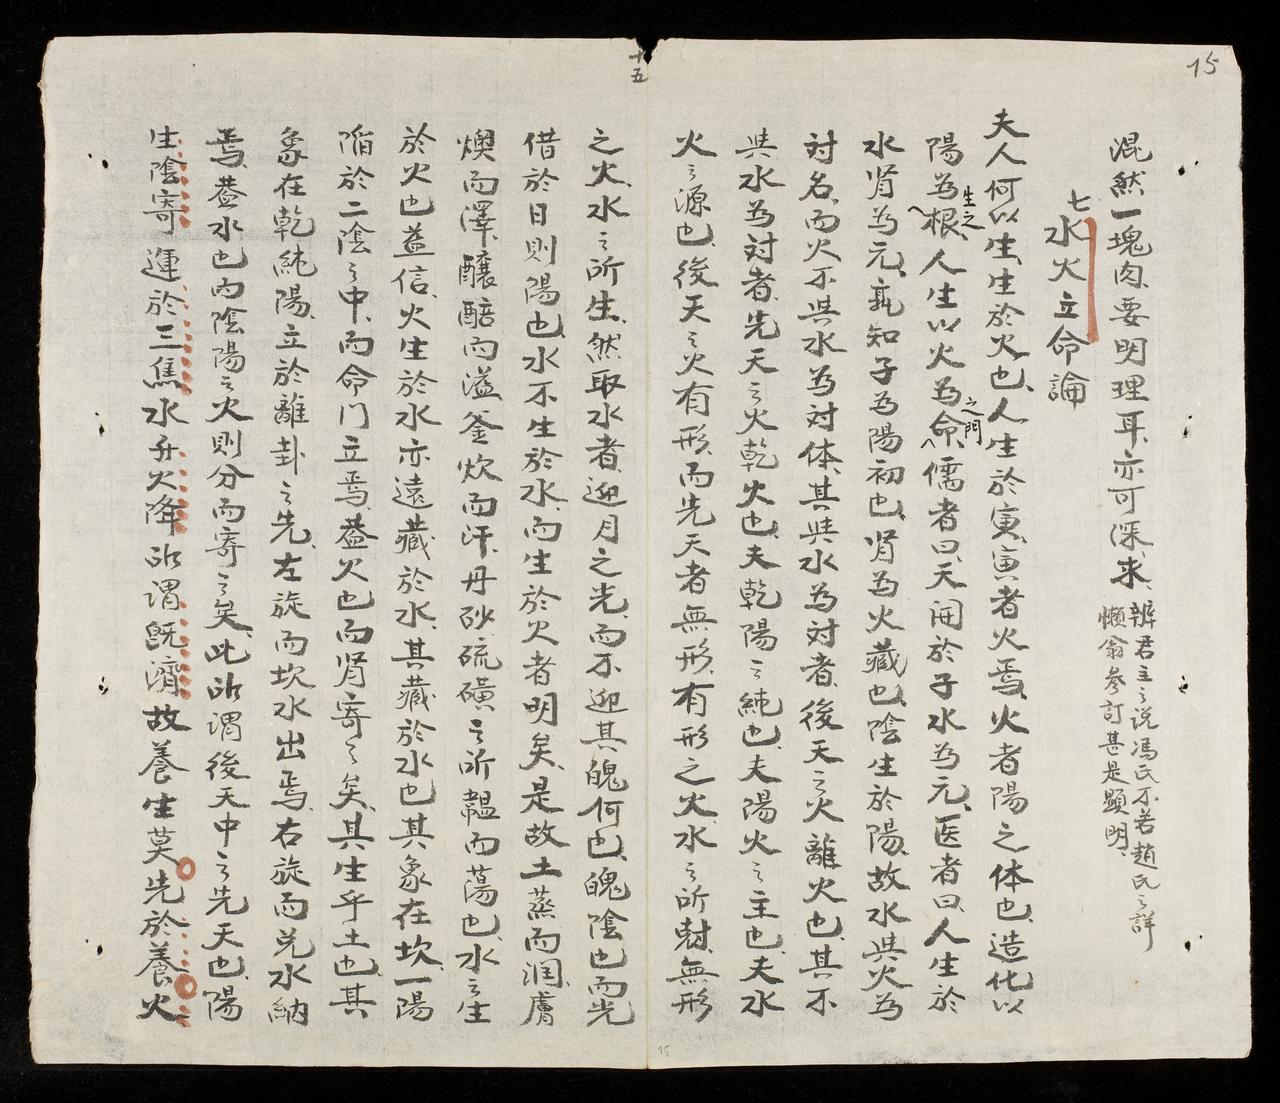 15
十五
混然一塊肉、要明理耳、亦可深求、辨君主之说馮氏不若趙氏之詳
懶翁参訂甚是顕明、
七水火立命論
夫人何以生、生於火也、人生於寅、寅者火焉、火者陽之体也、造化以
陽為生之根、人生以火為命之門、儒者曰、天開於子水為元、医者曰、人生於
水肾為元、孰知子為陽初也、肾為火藏也、陰生於陽、故水與火為
対名、而火不與水為対体、其與水為対者、後天之火離火也、其不
與水為対者、先天之火乾火也、夫乾陽之純也、夫陽火之主也、夫水
火之源也、後天之火有形、而先天者無形、有形之火、水之所尅、無形
之火、水之所生、然取水者、迎月之光、而不迎其魄何也、魄陰也、而光
借於日則陽也、水不生於水、而生於火者明矣、是故土蒸而润、膚
燠而澤、醸醅而溢、釜炊而汗、丹砂硫磺之所韞而蕩也、水之生
於火也益信、火生於水、亦遠藏於水、其藏於水也、其象在坎、一陽
陷於二陰之中、而命门立焉、葢火也而肾寄之矣、其生乎土也、其
象在乾純陽、立於離卦之先、左旋而坎水出焉、右旋而兑水納
焉、葢水也而陰陽之火則分而寄之矣、此所謂後天中之先天也、陽
生陰寄、運於三焦、水升火降、所謂旣濟、故養生莫先於養火
15